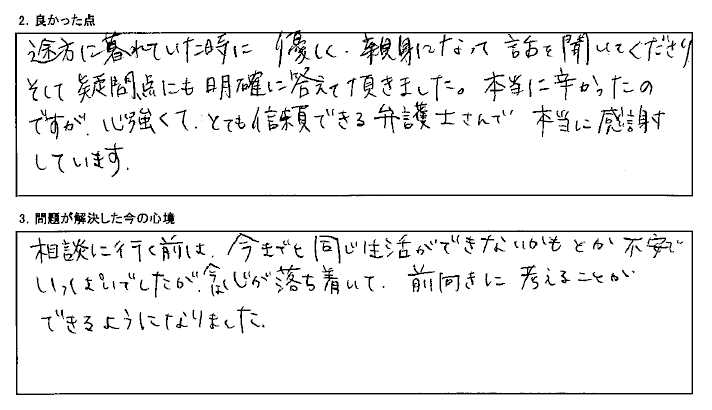 2. 良かった点
途方に暮れていた時に 優しく、親身になって 話を聞いてくださり
そして疑問点にも明確に答えて頂きました。本当に辛かったの
ですが、心強くて、とても信頼できる弁護士さんで 本当に感謝
しています。
3. 問題が解決した今の心境
相談に行く前は、今までと同じ生活ができないかもとか 不安で
いっぱいでしたが、今は心が落ち着いて、前向きに 考えることが
できるようになりました。